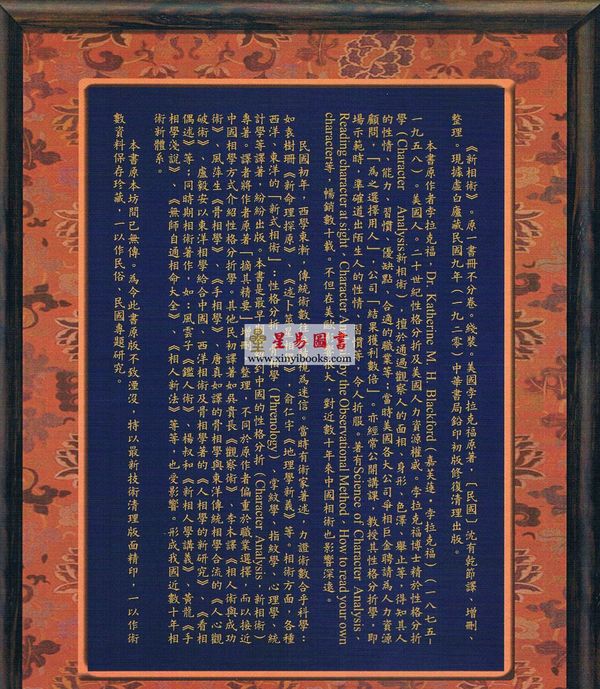 《新相術》。原一書冊不分卷。綫裝。美國李拉克福原著,〔民國〕沈有乾節譯、增刪、
整理。現據虛白廬藏民國九年(一九二〇)中華書局鉛印初版修復清理出版。
本書原作者李拉克福,Dr. Katherine M. H. Blackford (嘉芙蓮·李拉克福)(一八七五-
一九五八)。美國人。二十世紀性格分析及美國人力資源權威。李拉克福博士精於性格分析
學(Character Analysis新相術),擅於通過觀察人的面相、身形、色澤、舉止等,得知其人
的性情、能力、習慣、優缺點、合適的職業等;當時美國各大公司爭相巨金聘請為人力資源
顧問,「為之選擇用人」,公司「結果獲利數倍」。亦經常公開講課,教授其性格分析學,即
場示範時,準確道出陌生人的性情、習慣等,令人折服。著有Science of Character Analysis、
Reading character at sight、Character by the Observational Method、How to read your own
character等,暢銷數十載。不但在美歐很大,對近數十年來中國相術也影響深遠。
民國初年,西學東漸,傳統術數往視為迷信。當時有術家著述,力證術數合乎科學:
如袁樹珊《新命理探原》、《述卜筮星相》、俞仁宇《地理學新義》等。相術方面,各種
西洋、東洋的「新式相術」:性格分析學(Phrenology)、掌紋學、指紋學、心理學、統
計學等譯著,紛紛出版。本書是最早到中國的性格分析(Character Analysis 新相術)
專著。譯者將作者原著「摘其精要」整理,不同於原作者偏重於職業選擇,而以接近
中國相學方式介紹性格分析學。其他民初譯著如吳貴長《觀察術》、李木譯《相人術與成功
術》、風萍生《骨相學》、《手相學》、唐真如譯的骨相學與東洋傳統相學合流的《人心觀
破術》、盧毅安以東洋相學給合中國、西洋相術及骨相學著的《人相學的新研究》、《看相
偶述》等;同時期相術著作,如:風雲子《鑑人術》、楊叔和《新相人學講義》、黃龍《手
相學淺說》、《無師自通相命大全》、《相人新法》等等,也受影響。形成我國近數十年相
術新體系。
本書原本坊間已無傳。為令此書原版不致湮沒,特以最新技術清理版面精印,一以作術
數資料保存珍藏,一以作民俗、民國專題研究。
星易圖書
www.xinyibooks.com